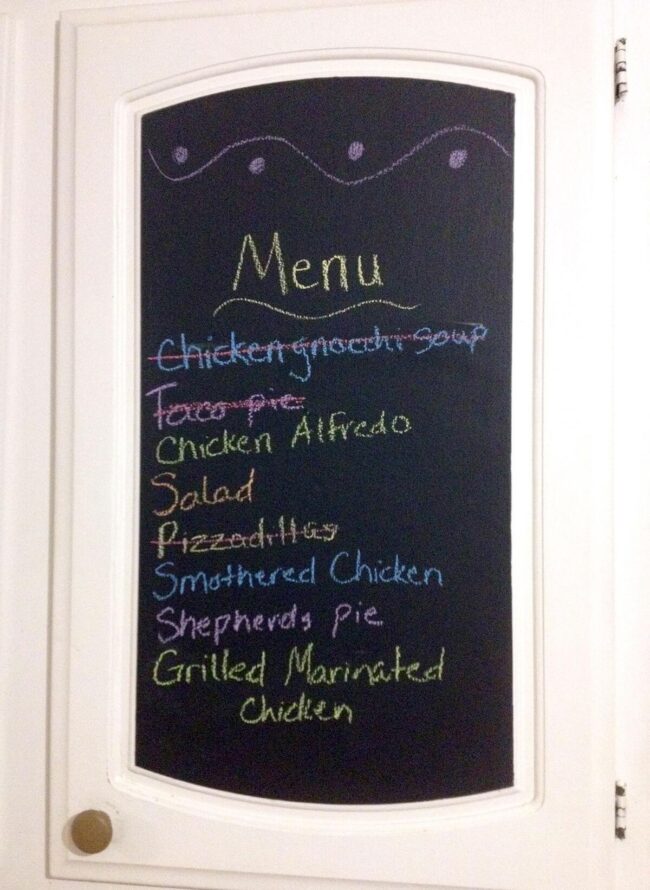 Menu
Chicken gnocchi soup
Taco pie
Chicken Alfredo
Salad
Pizzadillas
Smothered Chicken
Shepherds pie
Grilled Marinated
Chicken